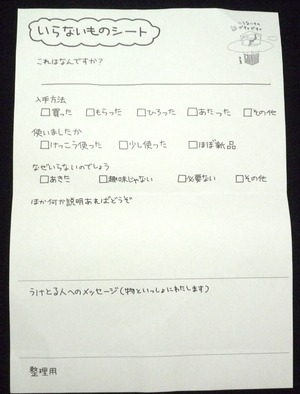 いらないものシート
これはなんですか?
入手方法
□買った □もらった □ひろった □あたった □その他
使いましたか
□けっこう使った □少し使った □ほぼ新品
なぜいらないのでしょう
□あきた □趣味じゃない □必要ない □その他
ほか何か説明あればどうぞ
うけとる人へのメッセージ(物といっしょにわたします)
整理用